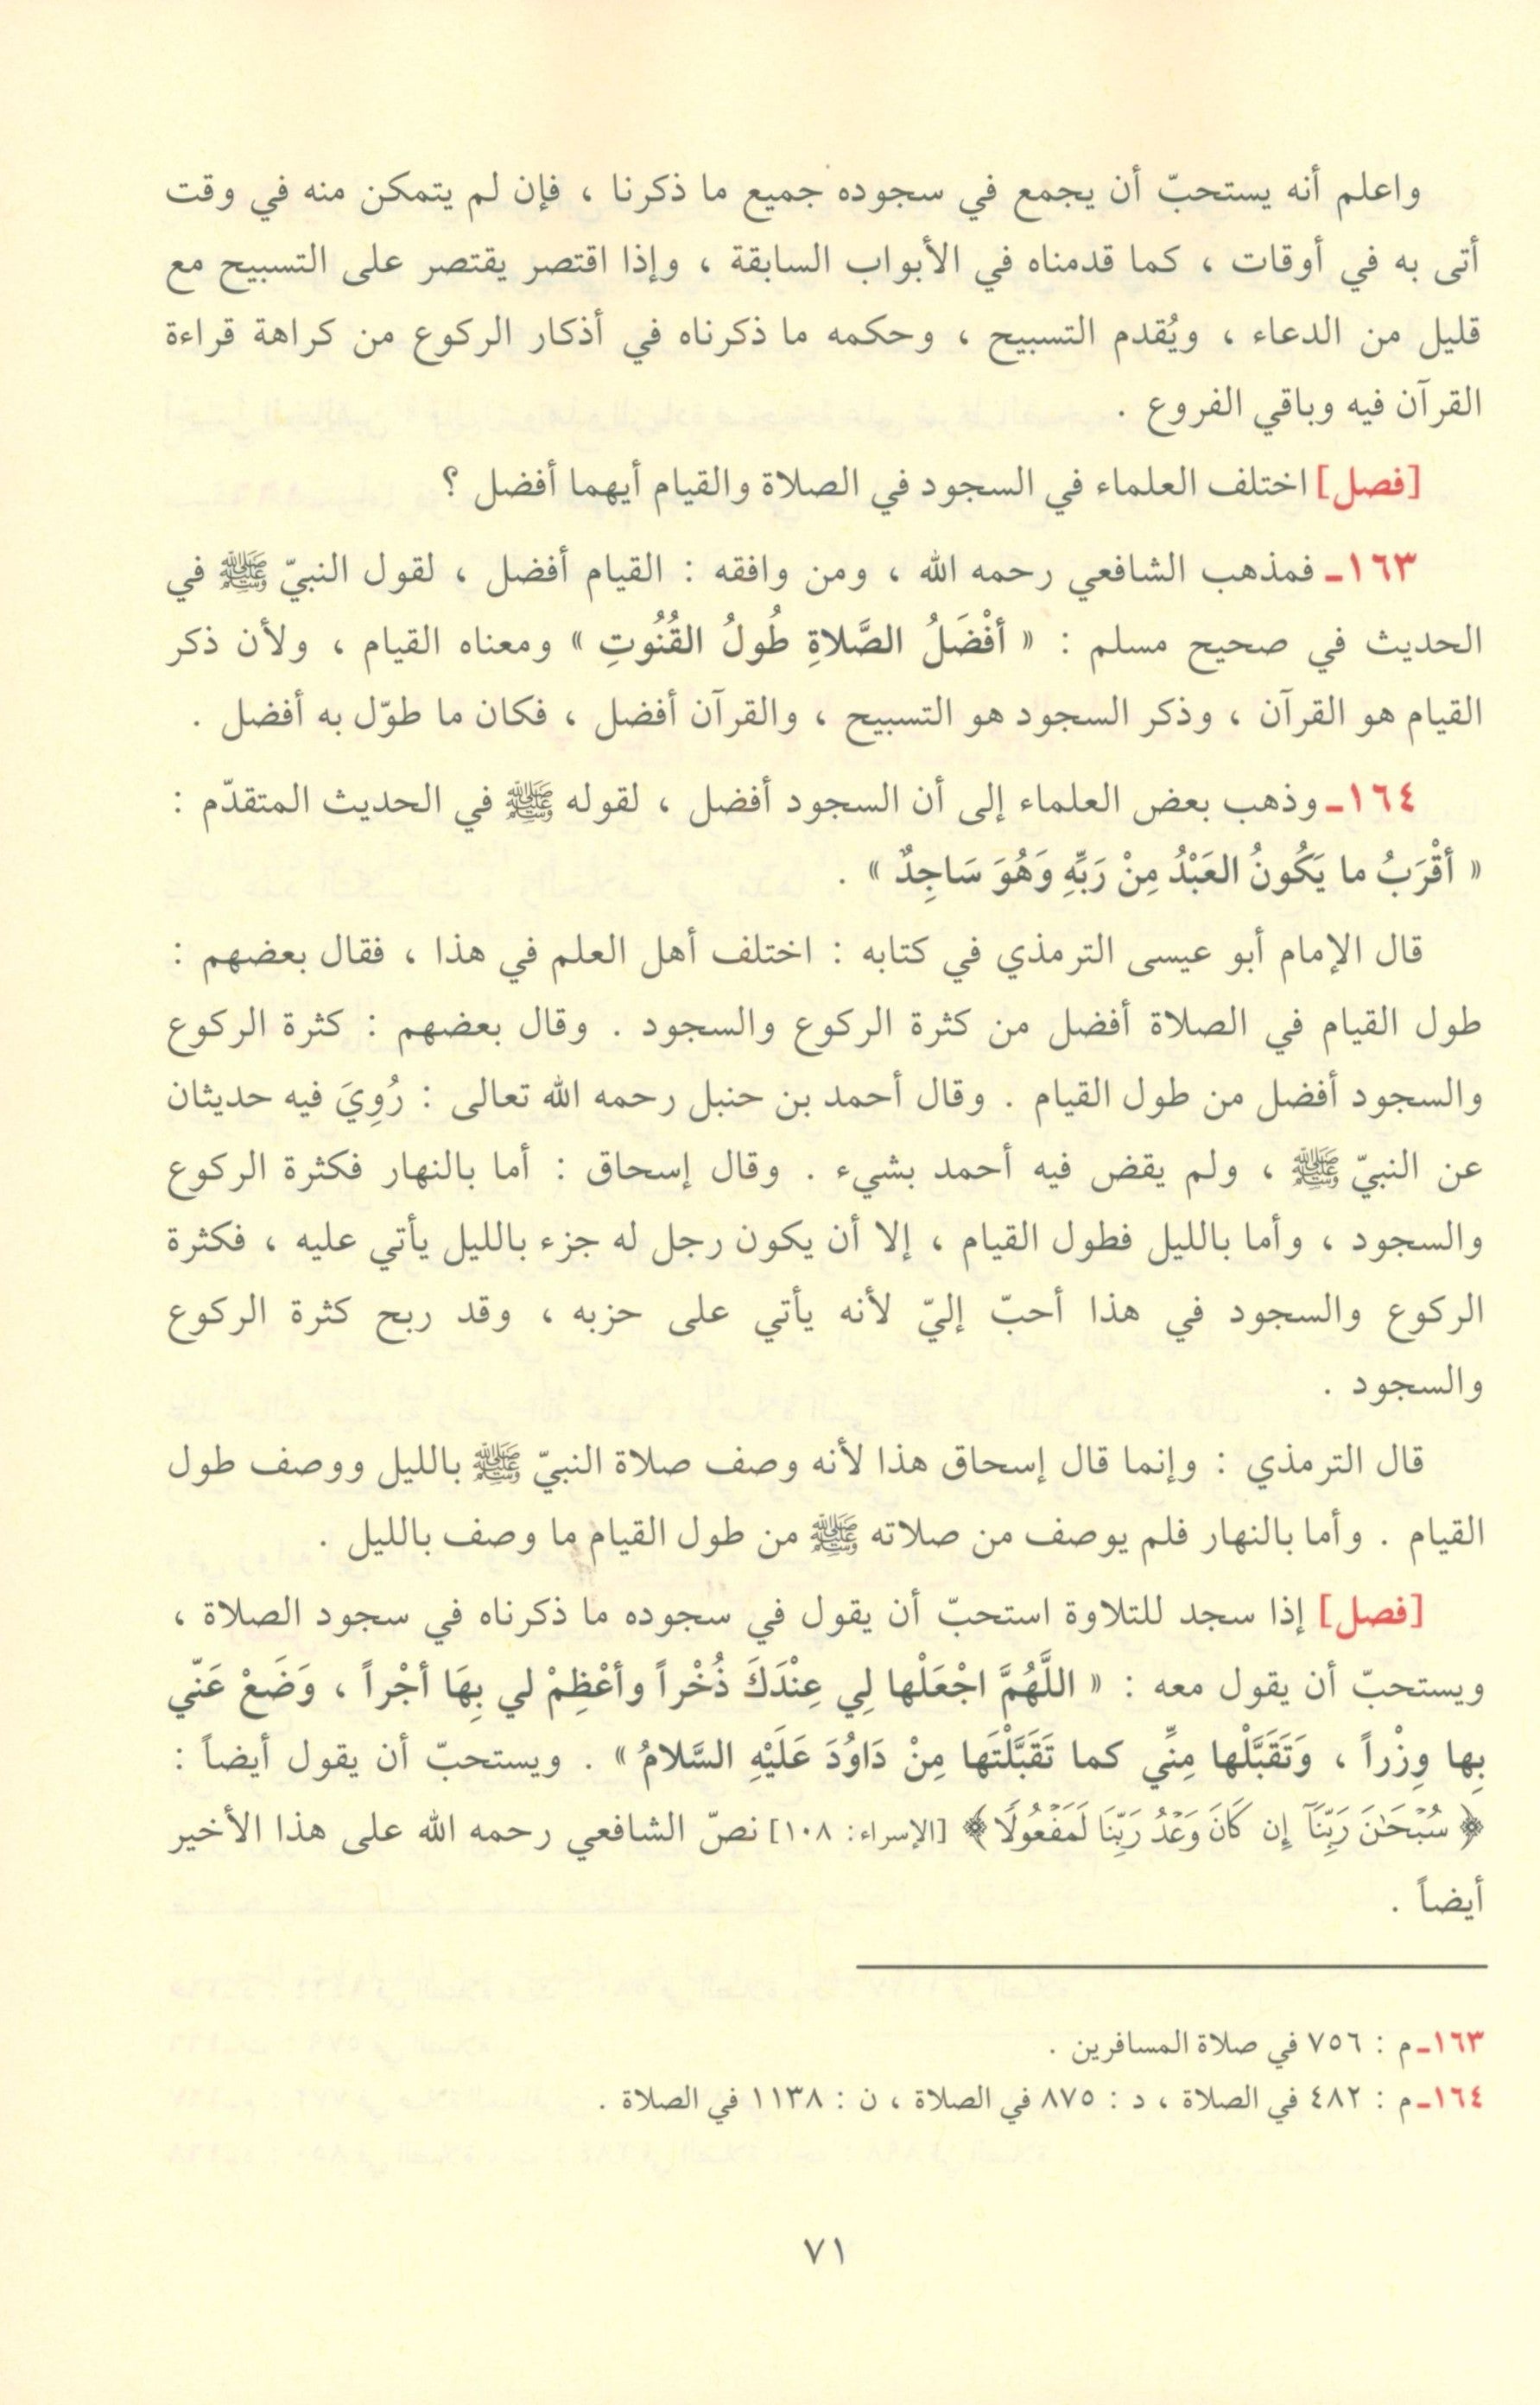 واعلم أنه يستحبّ أن يجمع في سجوده جميع ما ذكرنا ، فإن لم يتمكن منه في وقت
أتى به في أوقات ، كما قدمناه في الأبواب السابقة ، وإذا اقتصر يقتصر على التسبيح مع
قليل من الدعاء ، ويُقدم التسبيح ، وحكمه ما ذكرناه في أذكار الركوع من كراهة قراءة
القرآن فيه وباقي الفروع .
[فصل] اختلف العلماء في السجود في الصلاة والقيام أيهما أفضل ؟
١٦٣ـ فمذهب الشافعي رحمه الله ، ومن وافقه : القيام أفضل ، لقول النبيّ ﷺ في
الحديث في صحيح مسلم : « أفْضَلُ الصَّلاةِ طُولُ القُنُوتِ » ومعناه القيام ، ولأن ذكر
القيام هو القرآن ، وذكر السجود هو التسبيح ، والقرآن أفضل ، فكان ما طوّل به أفضل .
١٦٤ـ وذهب بعض العلماء إلى أن السجود أفضل ، لقوله ﷺ في الحديث المتقدّم :
« أقْرَبُ ما يَكُونُ العَبْدُ مِنْ رَبِّهِ وَهُوَ سَاجِدٌ » .
قال الإمام أبو عيسى الترمذي في كتابه : اختلف أهل العلم في هذا ، فقال بعضهم :
طول القيام في الصلاة أفضل من كثرة الركوع والسجود . وقال بعضهم : كثرة الركوع
والسجود أفضل من طول القيام . وقال أحمد بن حنبل رحمه الله تعالى : رُوِيَ فيه حديثان
عن النبيّ ﷺ ، ولم يقض فيه أحمد بشيء . وقال إسحاق : أما بالنهار فكثرة الركوع
والسجود ، وأما بالليل فطول القيام ، إلا أن يكون رجل له جزء بالليل يأتي عليه ، فكثرة
الركوع والسجود في هذا أحبّ إليّ لأنه يأتي على حزبه ، وقد ربح كثرة الركوع
والسجود .
قال الترمذي : وإنما قال إسحاق هذا لأنه وصف صلاة النبيّ ﷺ بالليل ووصف طول
القيام . وأما بالنهار فلم يوصف من صلاته ﷺ من طول القيام ما وصف بالليل .
[فصل] إذا سجد للتلاوة استحبّ أن يقول في سجوده ما ذكرناه في سجود الصلاة ،
ويستحبّ أن يقول معه : « اللَّهُمَّ اجْعَلْها لِي عِنْدَكَ ذُخْراً وأعْظِمْ لي بِهَا أجْراً ، وَضَعْ عَنّي
بِها وِزْراً ، وَتَقَبَّلْها مِنِّي كما تَقَبَّلْتَها مِنْ دَاوُدَ عَلَيْهِ السَّلامُ » . ويستحبّ أن يقول أيضاً :
﴿ سُبْحَٰنَ رَبِّنَآ إِن كَانَ وَعْدُ رَبِّنَا لَمَفْعُولًا ﴾ [الإسراء: ١٠٨] نصّ الشافعي رحمه الله على هذا الأخير
أيضاً .
١٦٣ـ م : ٧٥٦ في صلاة المسافرين .
١٦٤ـ م : ٤٨٢ في الصلاة ، د : ٨٧٥ في الصلاة ، ن : ١١٣٨ في الصلاة .
٧١